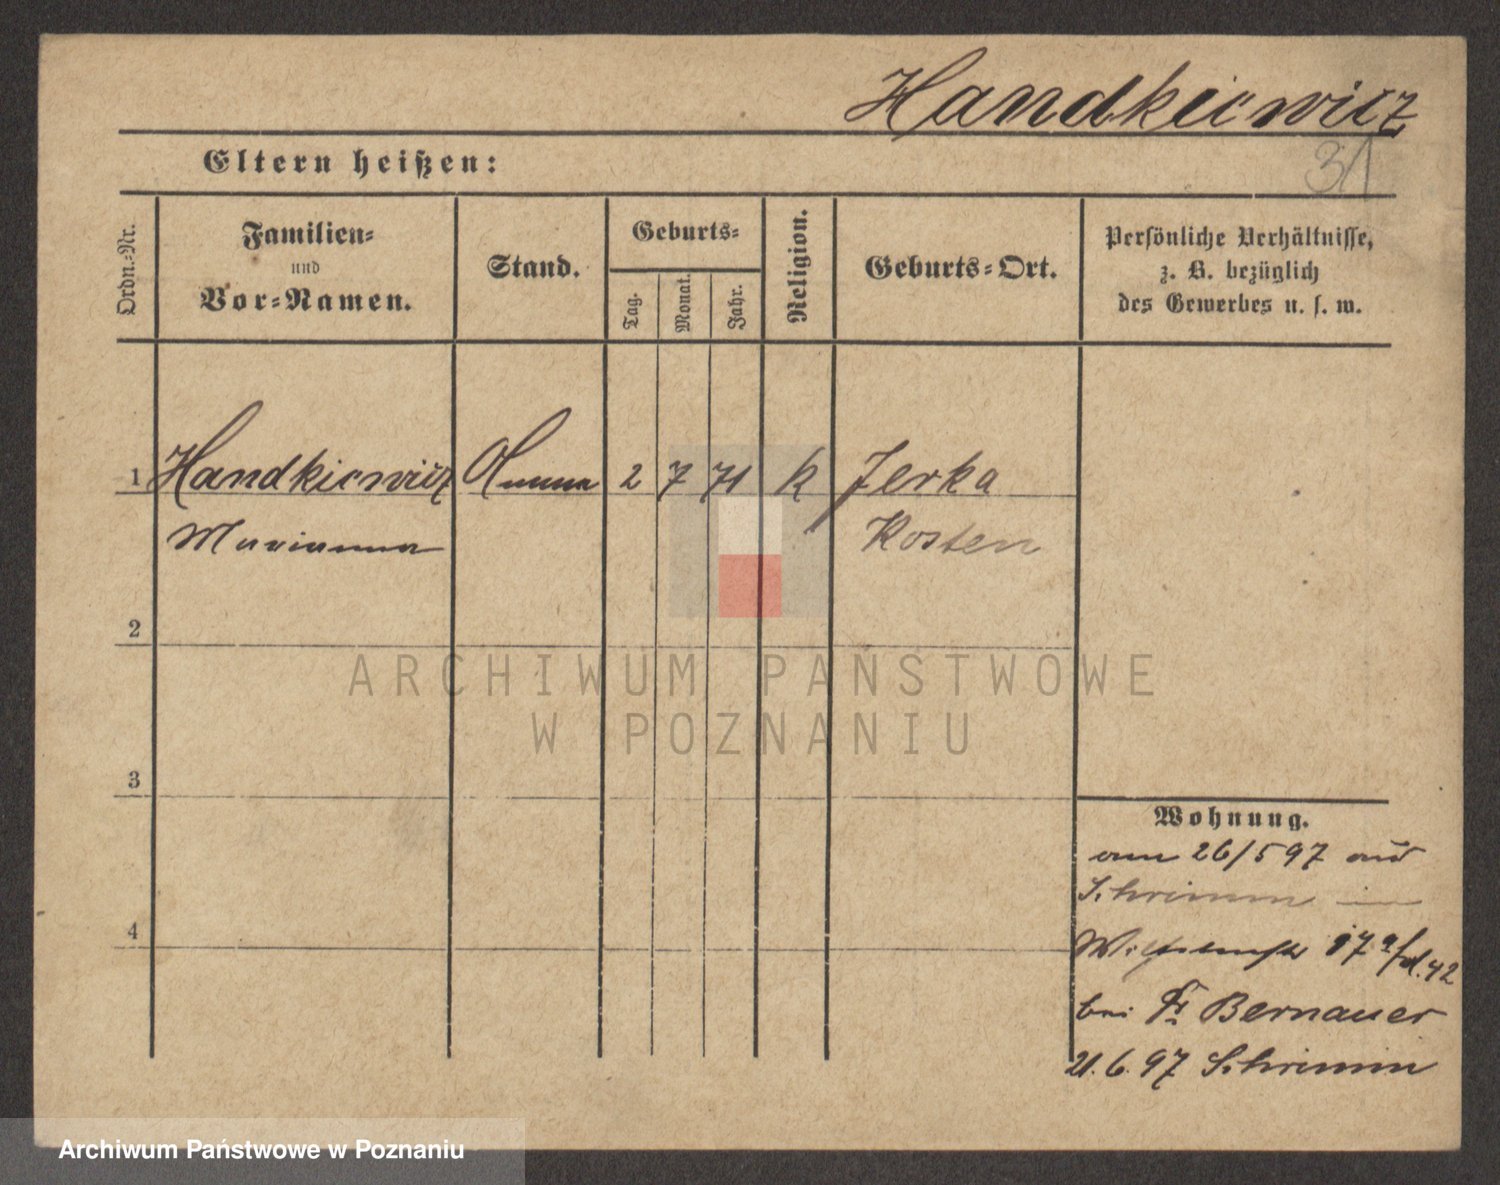 Handkiewicz
31
Eltern heißen:
Ordn.-Nr.
Familien-
und
Vor-Namen.
Stand.
Geburts-
Tag.
Monat.
Jahr.
Religion.
Geburts-Ort.
Persönliche Verhältnisse,
z. B. bezüglich
des Gewerbes u. s. w.
1 Handkiewicz Amme 2 7 71 k Jerka
Marianna Kosten
2
ARCHIWUM PAŃSTWOWE
W POZNANIU
3
Wohnung.
am 26/5 97 aus
Schrimm
4
17
bei Fr Bernauer
21.6.97 Schrimm
Archiwum Państwowe w Poznaniu